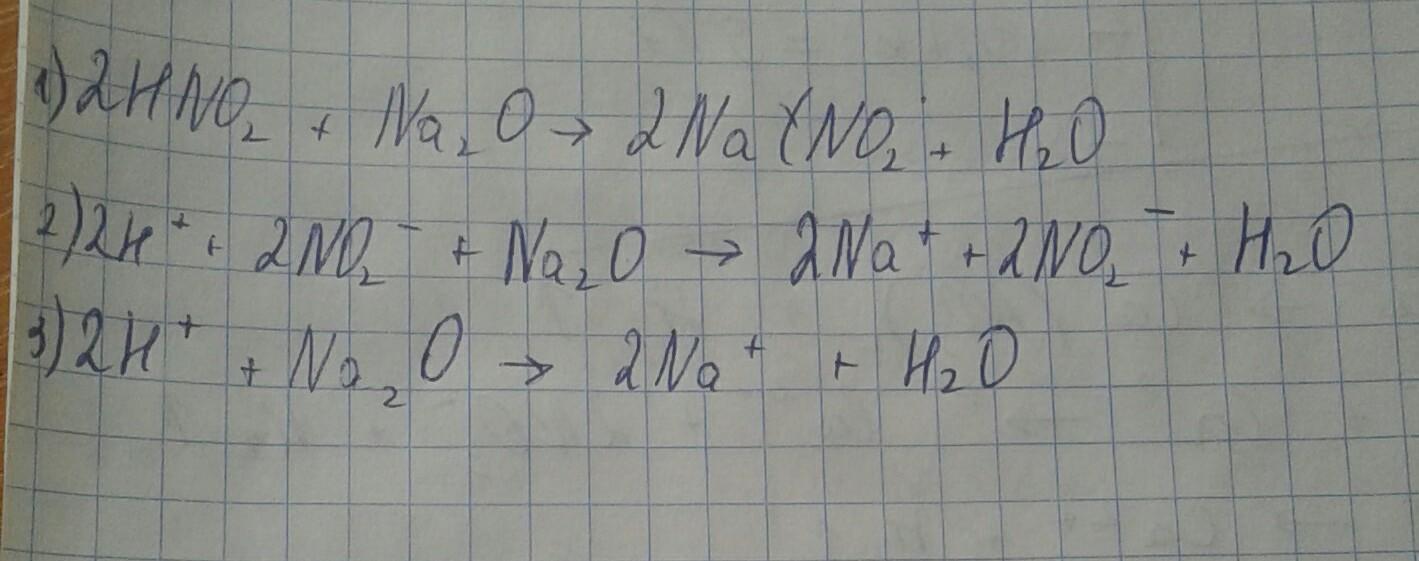 1) 2HNO₂ + Na₂O → 2Na(NO₂ + H₂O
2) 2H⁺ + 2NO₂⁻ + Na₂O → 2Na⁺ + 2NO₂⁻ + H₂O
3) 2H⁺ + Na₂O → 2Na⁺ + H₂O